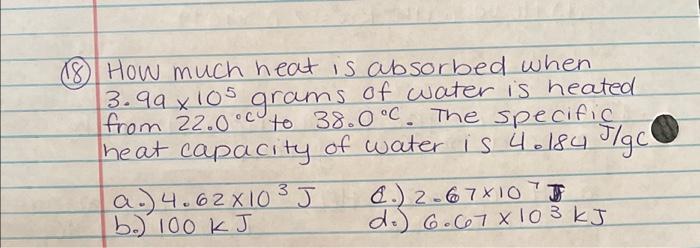 (18) How much heat is absorbed when
3.99 x 10⁵ grams of water is heated
from 22.0 °C to 38.0 °C. The specific
heat capacity of water is 4.184 J/gc
a.) 4.62 x 10³ J c.) 2.67 x 10⁷ J
b.) 100 kJ d.) 6.67 x 10³ kJ